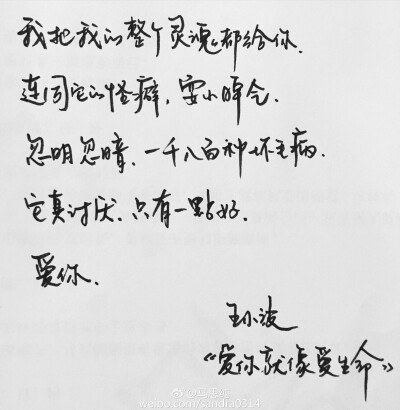 我把我的整个灵魂都给你.
连同它的怪癖, 耍小脾气.
忽明忽暗, 一千八百种坏毛病.
它真讨厌, 只有一點好.
爱你.
王小波
《爱你就像爱生命》
weibo.com/sandra0314